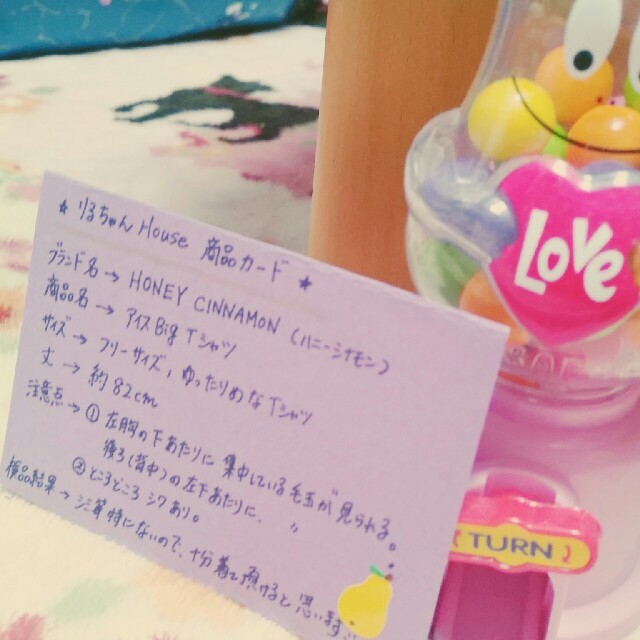 ★ りるちゃん House 商品カード ★
ブランド名 → HONEY CINNAMON (ハニーシナモン)
商品名 → アイス Big Tシャツ
サイズ → フリーサイズ、ゆったりめなTシャツ
丈 → 約82cm
注意点 → ① 左胸の下あたりに 集中している毛玉が見られる。
後ろ(背中)の左下あたりに、〃
② ところどころ シワあり。
検品結果 → シミ等特にないので、十分着て頂けると思います
Love
TURN